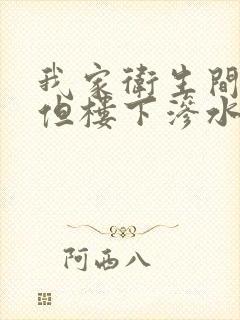 我家衛生間
但樓下滲水
阿西八